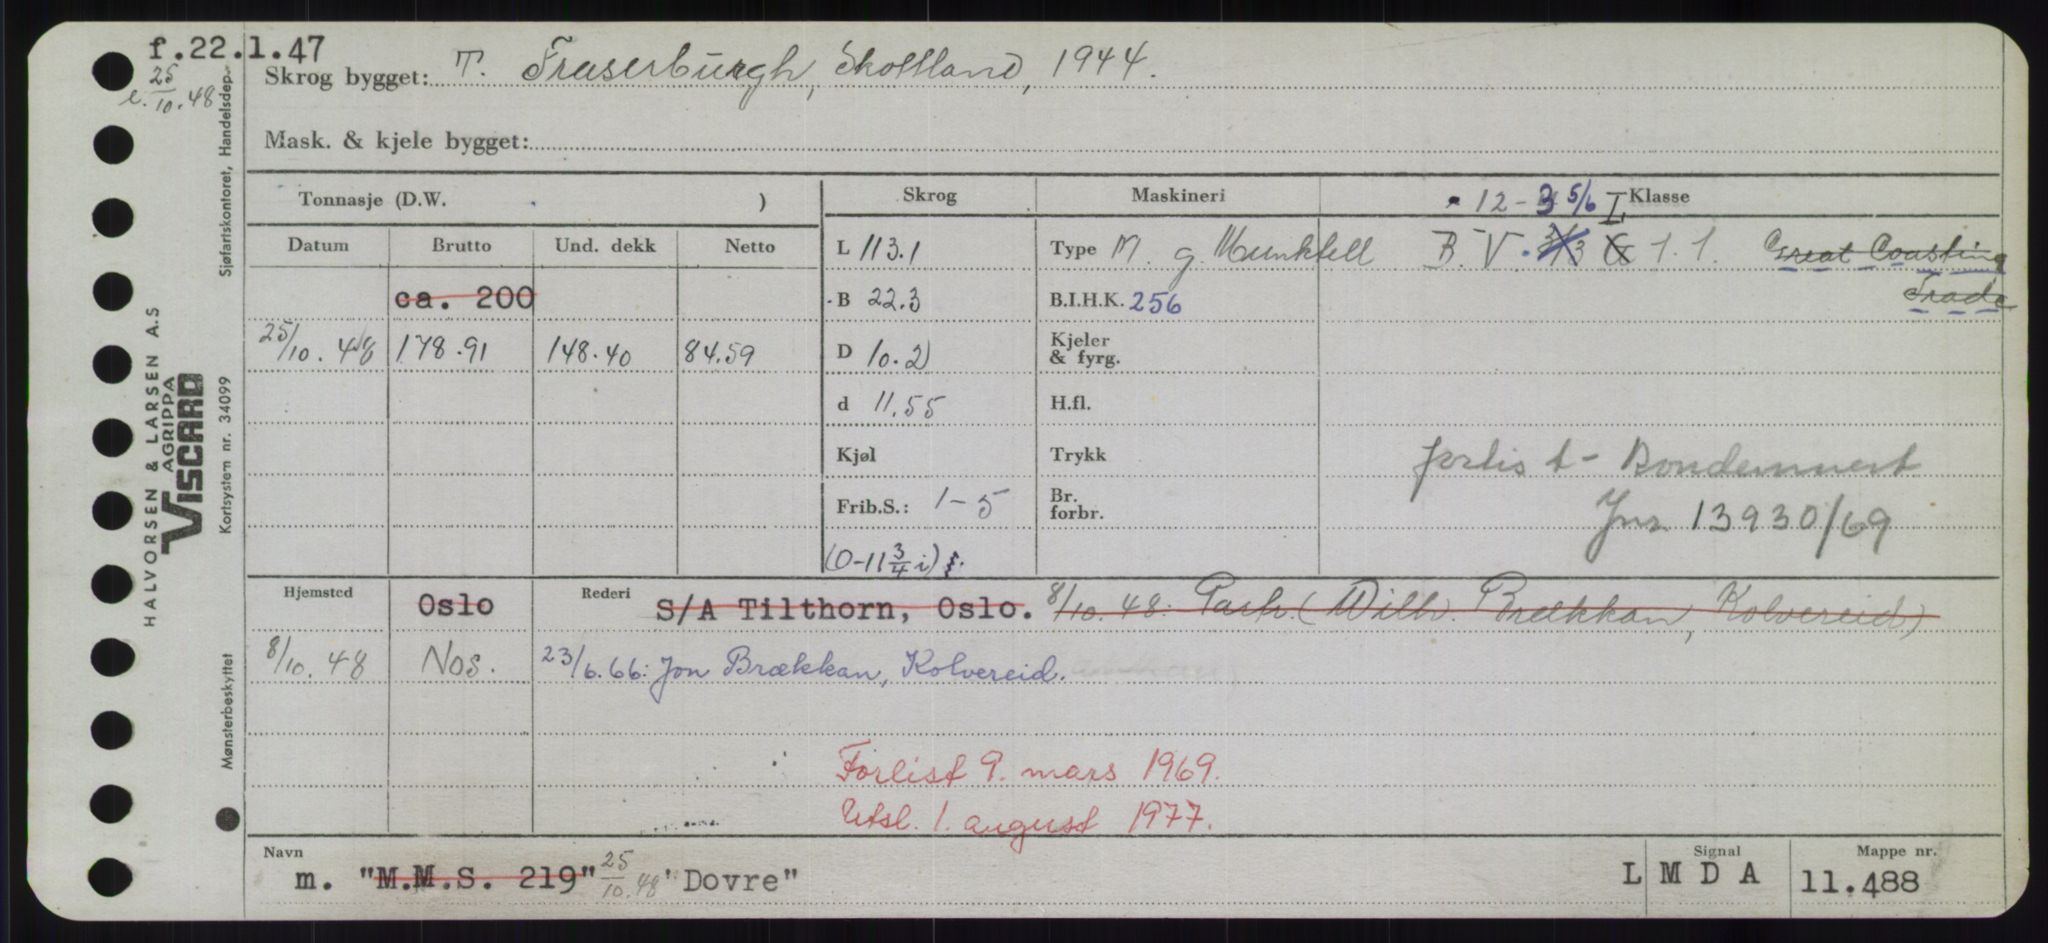 f.22.1.47
e. 25/10.48
Skrog bygget: T. Fraserburgh, Skottland, 1944.
Mask. & kjele bygget:
Tonnasje (D.W. )
Skrog
Maskineri
12-3 5/6 I, Klasse
Datum Brutto Und. dekk Netto
L 113.1
Type M. g. Munktell
B.V. 3/3 G 1.1. Great Coasting
Trade
ca. 200
B 22.3
B.I.H.K. 256
25/10.48 178.91 148.40 84.59
D 10.2
Kjeler & fyrg.
d 11.55
H.fl.
Kjøl
Trykk
forlist -
Frib.S.: 1-5
Br. forbr.
Jnr. 13930/69
(0-11 3/4 i)
Hjemsted Oslo
Rederi S/A Tilthorn, Oslo. 8/10.48: Partr. (Wilh. Brækkan, Kolvereid)
8/10.48 Nos. 23/6.66: Jon Brækkan, Kolvereid.
Forlist 9. mars 1969.
Utsl. 1. august 1977.
Navn
m. "M.M.S. 219" 25/10.48 "Dovre"
Signal
L M D A
Mappe nr.
11.488
Sjøfartskontoret, Handelsdep.
Kortsystem nr. 34099
Mønsterbeskyttet
HALVORSEN & LARSEN A.S
AGRIPPA
VISCARD